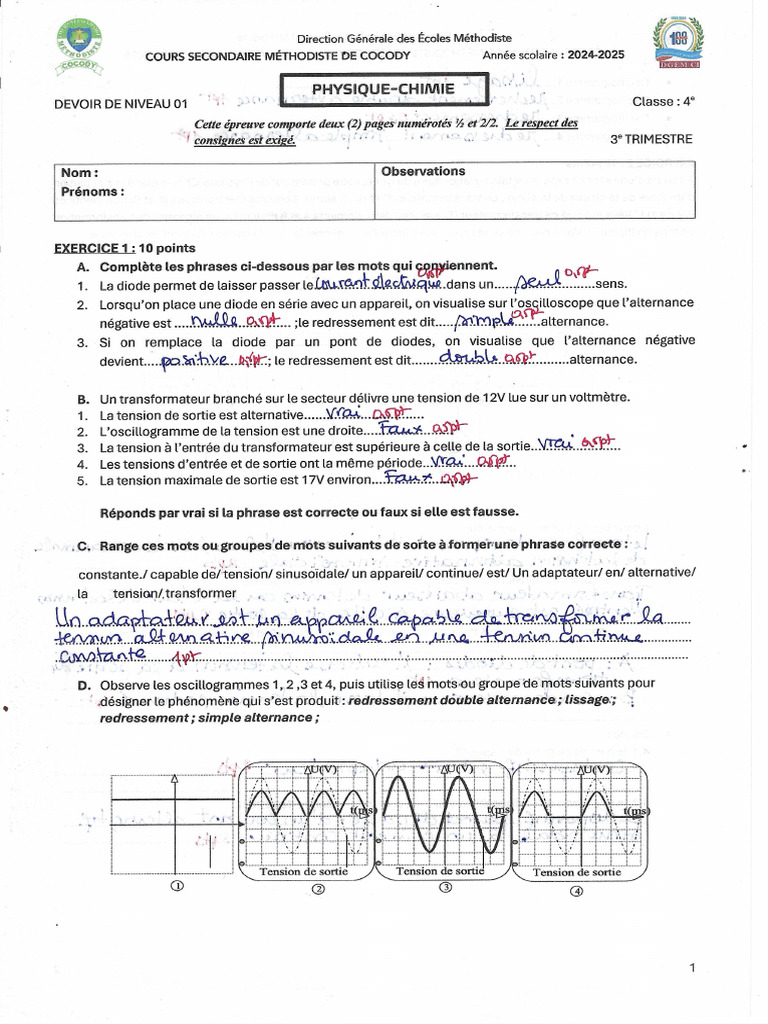 Direction Générale des Écoles Méthodiste
COURS SECONDAIRE MÉTHODISTE DE COCODY Année scolaire : 2024-2025
MÉTHODISTE
COCODY
DGEM CI
PHYSIQUE-CHIMIE
DEVOIR DE NIVEAU 01 Classe : 4e
Cette épreuve comporte deux (2) pages numérotés ½ et 2/2. Le respect des
consignes est exigé.
3e TRIMESTRE
Nom : Observations
Prénoms :
EXERCICE 1 : 10 points
A. Complète les phrases ci-dessous par les mots qui conviennent.
1. La diode permet de laisser passer le courant électrique 0,5pt dans un.....seul 0,5pt.....sens.
2. Lorsqu'on place une diode en série avec un appareil, on visualise sur l'oscilloscope que l'alternance
négative est ....nulle 0,5pt.... ;le redressement est dit.....simple 0,5pt.....alternance.
3. Si on remplace la diode par un pont de diodes, on visualise que l'alternance négative
devient....positive 0,5pt..; le redressement est dit......double 0,5pt........alternance.
B. Un transformateur branché sur le secteur délivre une tension de 12V lue sur un voltmètre.
1. La tension de sortie est alternative.....vrai 0,5pt.....
2. L'oscillogramme de la tension est une droite....Faux 0,5pt
3. La tension à l'entrée du transformateur est supérieure à celle de la sortie..vrai 0,5pt
4. Les tensions d'entrée et de sortie ont la même période..vrai 0,5pt..
5. La tension maximale de sortie est 17V environ...Faux 0,5pt
Réponds par vrai si la phrase est correcte ou faux si elle est fausse.
C. Range ces mots ou groupes de mots suivants de sorte à former une phrase correcte :
constante./ capable de/ tension/ sinusoïdale/ un appareil/ continue/ est/ Un adaptateur/ en/ alternative/
la tension/ transformer
Un adaptateur est un appareil capable de transformer la
tension alternative sinusoïdale en une tension continue
constante 1pt
D. Observe les oscillogrammes 1, 2 ,3 et 4, puis utilise les mots ou groupe de mots suivants pour
désigner le phénomène qui s'est produit : redressement double alternance ; lissage ;
redressement ; simple alternance ;
U(V) U(V) U(V)
t(ms) t(ms) t(ms)
Tension de sortie Tension de sortie Tension de sortie
① ② ③ ④
1